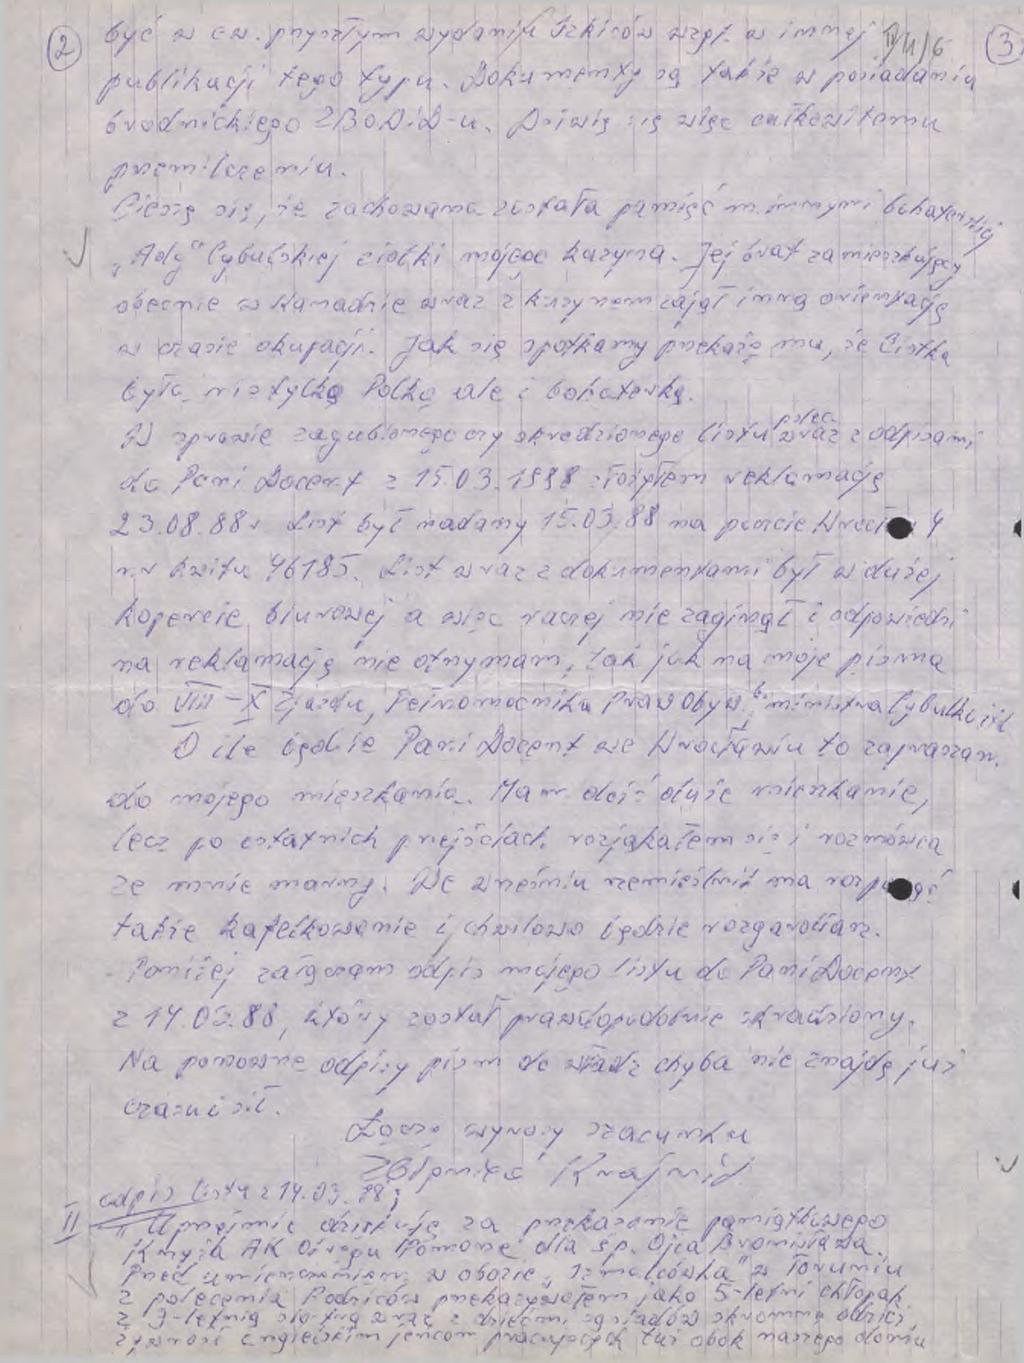 ② być w ew. przyszłym wydaniu szkiców wzgl. w innej II/4/6 ③
publikacji tego typu. Dokumenty są także w posiadaniu
brodnickiego ZBOWiD-u. Dziwię się więc całkowitemu
przemilczeniu.
Cieszę się, że zachowana została pamięć m. innymi bohaterskiej
"Ady" Cybulskiej ciotki mojego kuzyna. Jej brat zamieszkujący
obecnie w Kanadzie wraz z kuzynem zajął inną orientację
w czasie okupacji. Jak się spotkamy przekażę mu, że Ciotka
była nietylko Polką ale i bohaterką.
W sprawie zagubionego czy skradzionego listu polec. wraz z odpisami
do Pani Docent z 15.03.1988 złożyłem reklamację
23.08.88r List był nadany 15.03.88 na poczcie 4
nr kwitu 46185. List wraz z dokumentami był w dużej
kopercie biurowej a więc raczej nie zaginął i odpowiedzi
na reklamację nie otrzymam, tak jak na moje pisma
do VIII – X Zjazdu, Pełnomocnika Praw Obyw. b. ministra Cybulki itd
O ile będzie Pani Docent we Wrocławiu to zapraszam
do mojego mieszkania. Mam dość duże mieszkanie,
lecz po ostatnich przejściach rozjąkałem się i rozmówca
ze mnie marny. We wrześniu rzemieślnik ma
także kafelkowanie i chwilowo będzie rozgardiarz.
Poniżej załączam odpis mojego listu do Pani Docent
z 14.03.88, który został prawdopodobnie skradziony.
Na ponowne odpisy pism do władz chyba nie znajdę już
czasu i sił.
Łączę wyrazy szacunku
Zbigniew
odpis listu z 14.03.88;
II "Uprzejmie dziękuję za przekazanie pamiątkowego
Krzyża AK Okręgu Pomorze dla śp. Ojca Bronisława.
Przed umieszczeniem w obozie "Szmalcówka" w Toruniu
z polecenia Rodziców przekazywałem jako 5-letni chłopak
z 3-letnią siostrą wraz z dziećmi sąsiadów skromną odzież
żywność angielskim jeńcom pracujących tuż obok naszego domu